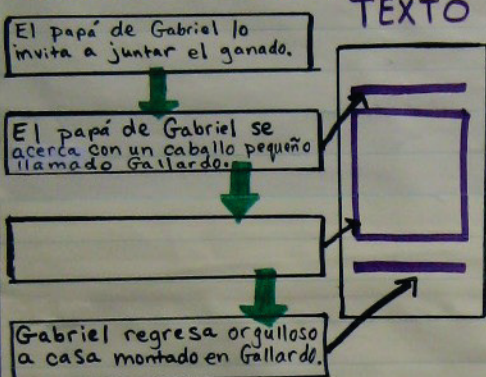 TEXTO
El papá de Gabriel lo
invita a juntar el ganado.
El papá de Gabriel se
acerca con un caballo pequeño
llamado Gallardo.
Gabriel regresa orgulloso
a casa montado en Gallardo.